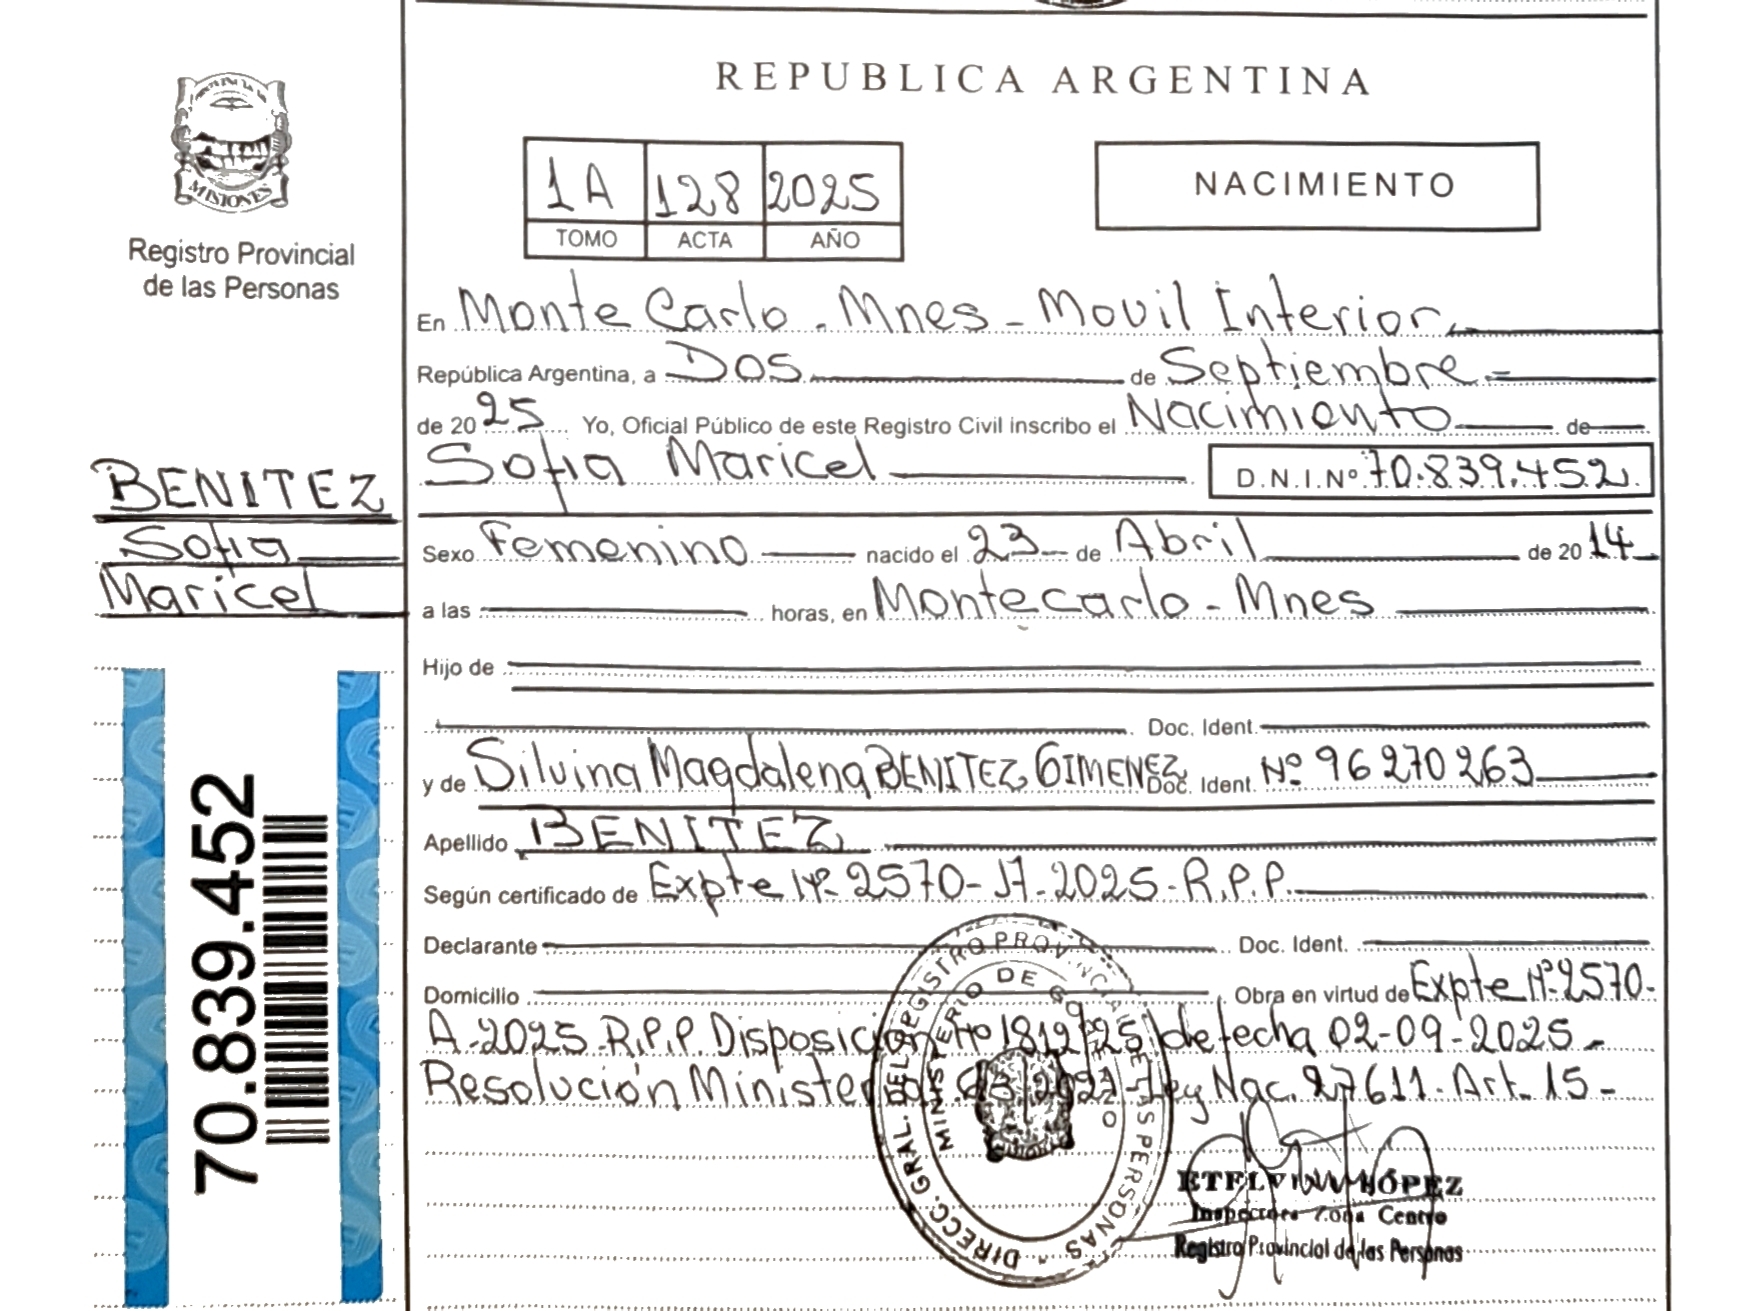 REPUBLICA ARGENTINA
PROVINCIA DE
MISIONES
Registro Provincial
de las Personas
1A 128 2025
TOMO ACTA AÑO
NACIMIENTO
En Monte Carlo - Mnes - Movil Interior
República Argentina, a Dos de Septiembre
de 2025 Yo, Oficial Público de este Registro Civil inscribo el Nacimiento de
Sofia Maricel D.N.I.Nº 70.839.452
BENITEZ
Sofia
Maricel
Sexo Femenino nacido el 23 de Abril de 2014
a las horas, en Montecarlo - Mnes
Hijo de
Doc. Ident.
y de Silvina Magdalena BENITEZ GIMENEZ Doc. Ident. Nº 96270263
Apellido BENITEZ
Según certificado de Expte Nº 2570-A-2025-R.P.P.
Declarante Doc. Ident.
Domicilio Obra en virtud de Expte Nº 2570-
A-2025-R.P.P. Disposición Nº 1812/25 de fecha 02-09-2025-
Resolución Ministerial Ley Nac. 27611-Art. 15-
70.839.452
DIRECC. GRAL. DEL REGISTRO PROVINCIAL DE LAS PERSONAS
MINISTERIO DE GOBIERNO
LÓPEZ
Inspectora Zona Centro
Registro Provincial de las Personas